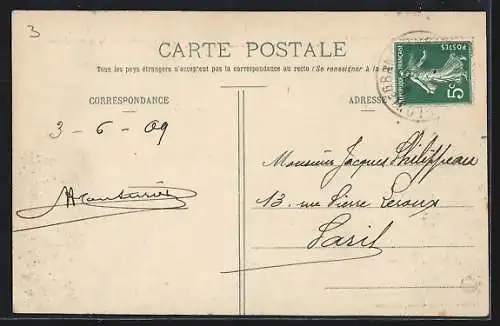 3
CARTE POSTALE
Tous les pays étrangers n'acceptent pas la correspondance au recto (Se renseigner à la
CORRESPONDANCE
ADRESSE
RÉPUBLIQUE FRANÇAISE
POSTES
5c
3-6-09
Monsieur Jacques Philippeau
13. rue Pierre Leroux
Paris